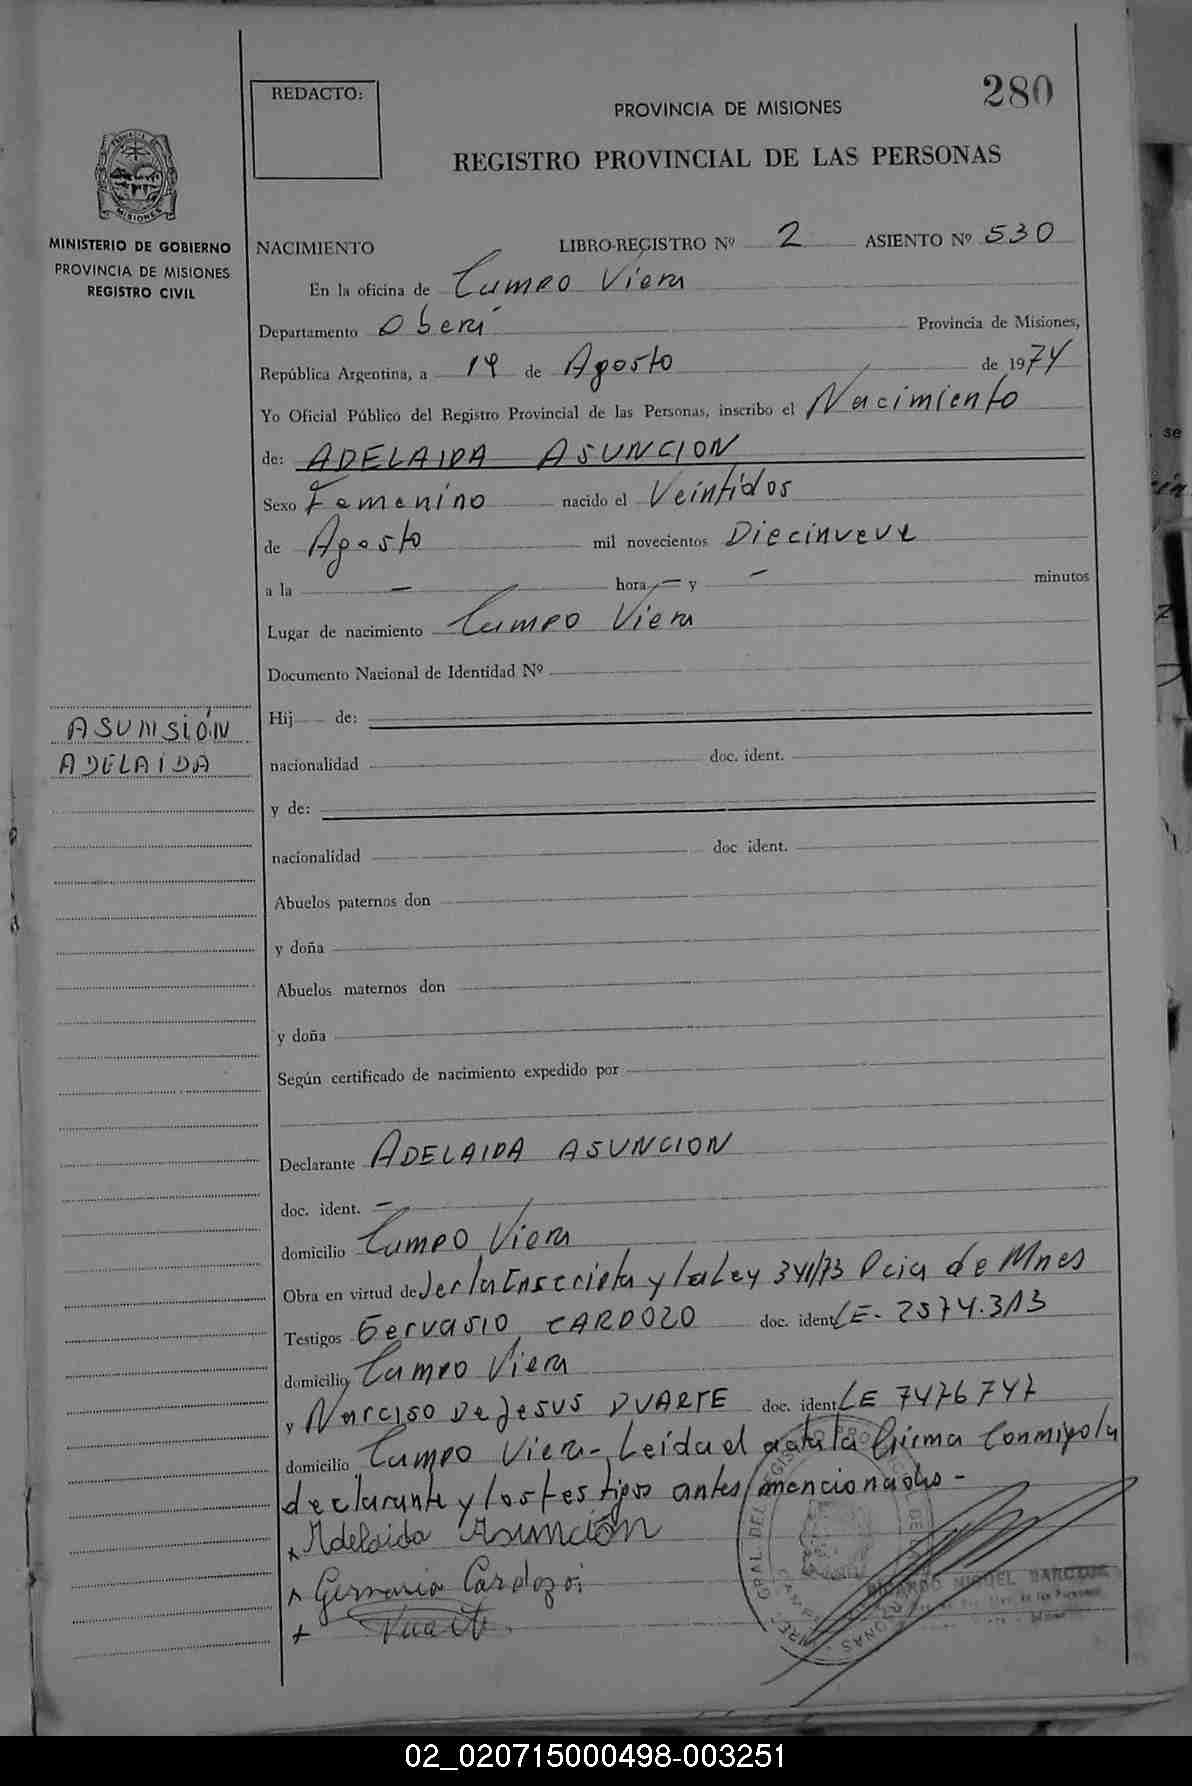 280
REDACTO:
PROVINCIA DE MISIONES
REGISTRO PROVINCIAL DE LAS PERSONAS
MINISTERIO DE GOBIERNO
PROVINCIA DE MISIONES
REGISTRO CIVIL
NACIMIENTO LIBRO-REGISTRO Nº 2 ASIENTO Nº 530
En la oficina de Campo Viera
Departamento Oberá Provincia de Misiones,
República Argentina, a 14 de Agosto de 1974
Yo Oficial Público del Registro Provincial de las Personas, inscribo el Nacimiento
de: ADELAIDA ASUNCION
Sexo Femenino nacido el Veintidos
de Agosto mil novecientos Diecinueve
a la — hora — y — minutos
Lugar de nacimiento Campo Viera
Documento Nacional de Identidad Nº
Hij de:
ASUNSIÓN
ADELAIDA
nacionalidad doc. ident.
y de:
nacionalidad doc ident.
Abuelos paternos don
y doña
Abuelos maternos don
y doña
Según certificado de nacimiento expedido por
Declarante ADELAIDA ASUNCION
doc. ident. —
domicilio Campo Viera
Obra en virtud de Ser la Enscripta y la Ley 341/73 Pcia de Mnes
Testigos Gervasio CARDOZO doc. ident LE- 2574.313
domicilio Campo Viera
y Narciso De Jesus DUARTE doc. ident LE 7476747
domicilio Campo Viera- Leida el acta la firma Conmigo la
declarante y los testigos antes mencionado -
x Adelaida Asunción
x Cardozo
+ Duarte
02_020715000498-003251